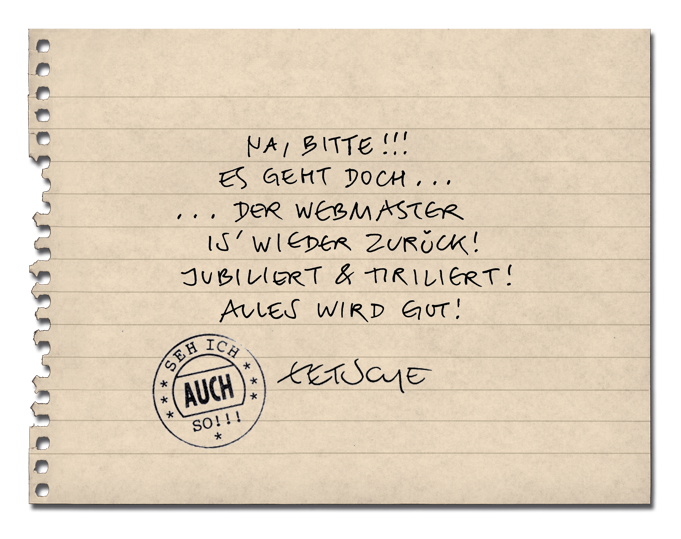 NA, BITTE!!!
ES GEHT DOCH...
... DER WEBMASTER
IS' WIEDER ZURÜCK!
JUBILIERT & TIRILIERT!
ALLES WIRD GUT!
TETSCHE
SEH ICH
AUCH
SO!!!